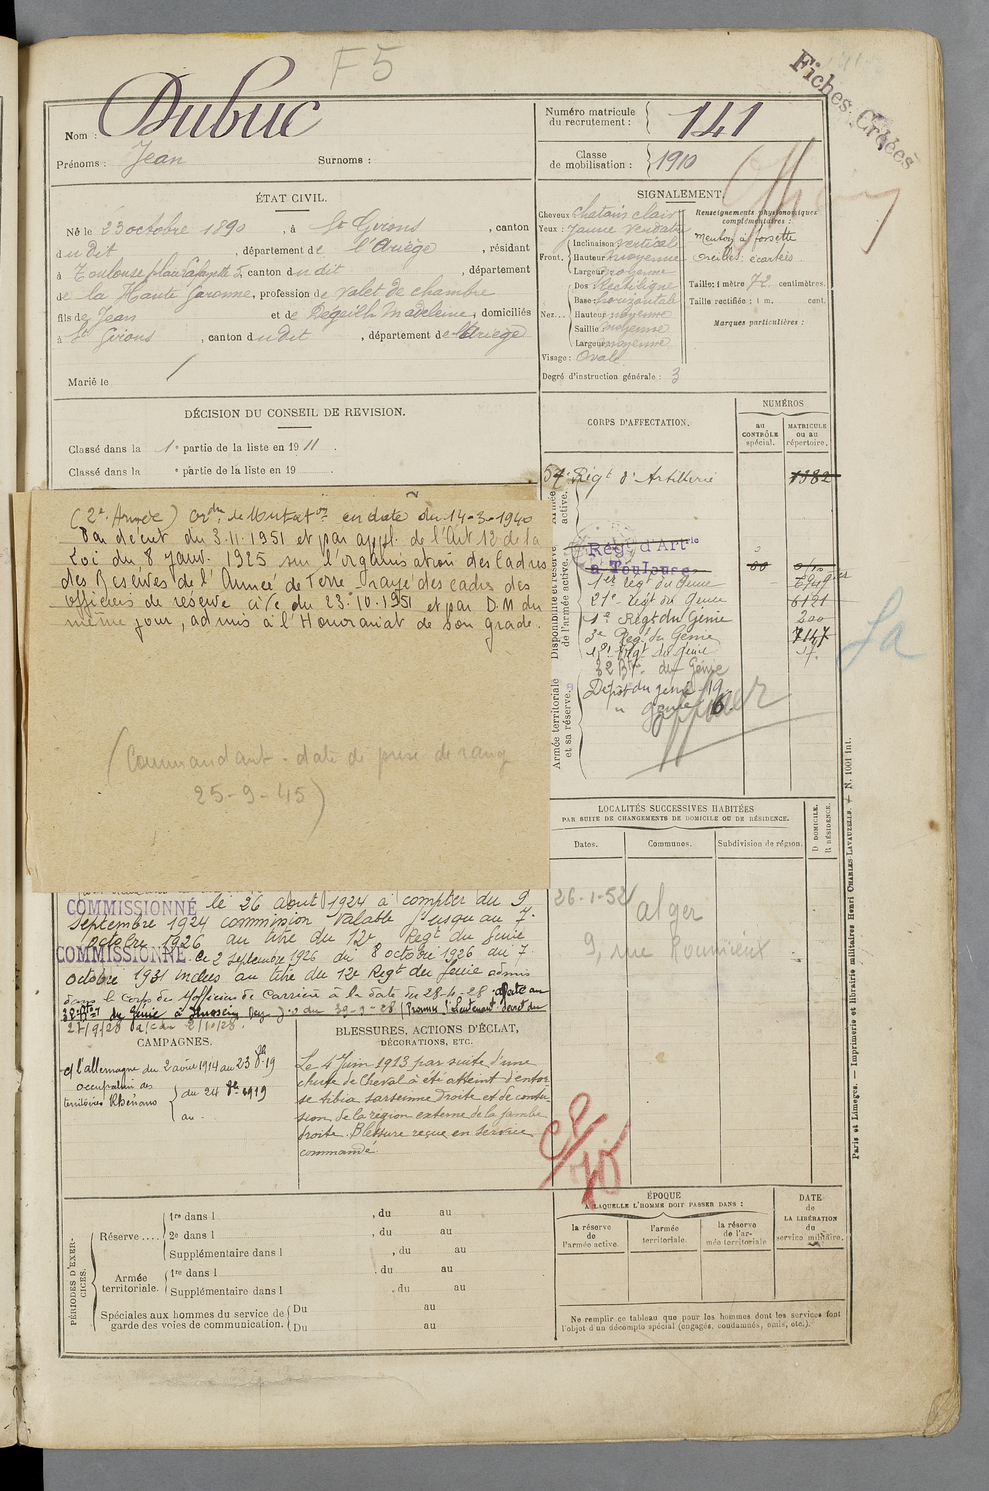 F5
Fiches Créées
Nom : Dubuc
Prénoms : Jean Surnoms :
Numéro matricule
du recrutement : 141
Classe
de mobilisation : 1910
ÉTAT CIVIL.
Né le 23 octobre 1890, à St Girons, canton
du dit, département de l'Ariège, résidant
à Toulouse place Lafayette 5, canton du dit, département
de la Haute Garonne, profession de valet de chambre
fils de Jean et de Régeilh Madeleine, domiciliés
à St Girons, canton du dit, département de l'Ariège
Marié le /
SIGNALEMENT.
Cheveux chatain clair
Yeux : Jaune verdatre
Front. Inclinaison verticale
Hauteur moyenne
Largeur moyenne
Nez... Dos Rectiligne
Base horizontale
Hauteur moyenne
Saillie moyenne
Largeur moyenne
Visage : Ovale
Degré d'instruction générale : 3
Renseignements physionomiques
complémentaires :
Menton à fossette
Oreilles : écartées
Taille : 1 mètre 72 centimètres.
Taille rectifiée : 1 m. cent.
Marques particulières :
DÉCISION DU CONSEIL DE REVISION.
Classé dans la 1e partie de la liste en 1911
Classé dans la e partie de la liste en 19
CORPS D'AFFECTATION.
NUMÉROS
au
CONTRÔLE
spécial.
MATRICULE
ou au
répertoire.
Armée
active.
57e Régt d'Artillerie 1382
Disponibilité et réserve
de l'armée active.
Régt d'Artie
à Toulouse
1er Régt du Génie
21e Régt du Génie 6121
1er Régt du Génie 200
3e Régt du Génie 7147
Régt du Génie 17.
32 Bn du Génie
Armée territoriale
et sa réserve.
Dépôt du génie 19
" génie 16.
(2e Année) en date du 14-3-1940
Par décret du 3.11.1951 et par appl. de l'Art 12 de la
Loi du 8 Janv. 1925 sur l'organisation des Cadres
des Réserves de l'Armée de Terre rayé des cadres des
officiers de réserve à/c du 23.10.1951 et par D.M du
même jour, admis à l'Honorariat de son grade.
(Commandant - date de prise de rang
25-9-45)
La
LOCALITÉS SUCCESSIVES HABITÉES
PAR SUITE DE CHANGEMENTS DE DOMICILE OU DE RÉSIDENCE.
Dates. Communes. Subdivision de région. D DOMICILE. R RÉSIDENCE.
26-1-52 Alger
9, rue Roumieux
COMMISSIONNÉ le 26 aout 1924 à compter du 9
Septembre 1924 commission valable jusqu'au 7
octobre 1926 au titre du 12e Régt du Génie
COMMISSIONNÉ le 2 septembre 1926 du 8 octobre 1926 au 7
octobre 1931 inclus au titre du 12e Régt du Génie admis
dans le corps des sofficiers de Carrière à la date du 28-4-28 affecté au
27/9/28 à/c du 2/10/28.
CAMPAGNES.
c/ l'allemagne du 2 août 1914 au 23 8bre 19
occupation des
territoires Rhénans du 24 8bre 1919
au .
BLESSURES, ACTIONS D'ÉCLAT,
DÉCORATIONS, ETC.
Le 4 Juin 1913 par suite d'une
chute de Cheval à été atteint d'entor
se tibia tarsienne droite et de contu
sion de la région externe de la jambe
droite. Blessure reçue en service
commandé.
PÉRIODES D'EXER-
CICES.
Réserve....
1re dans l , du au
2e dans l , du au
Supplémentaire dans l , du au
Armée
territoriale.
1re dans l , du au
Supplémentaire dans l , du au
Spéciales aux hommes du service de
garde des voies de communication.
Du au
Du au
ÉPOQUE
A LAQUELLE L'HOMME DOIT PASSER DANS :
la réserve
de
l'armée active.
l'armée
territoriale.
la réserve
de l'ar-
mée territoriale
DATE
de
LA LIBÉRATION
du
service militaire.
Ne remplir ce tableau que pour les hommes dont les services font
l'objet d'un décompte spécial (engagés, condamnés, omis, etc.).
Paris et Limoges. — Imprimerie et librairie militaires Henri CHARLES-LAVAUZELLE. — N. 1001 int.